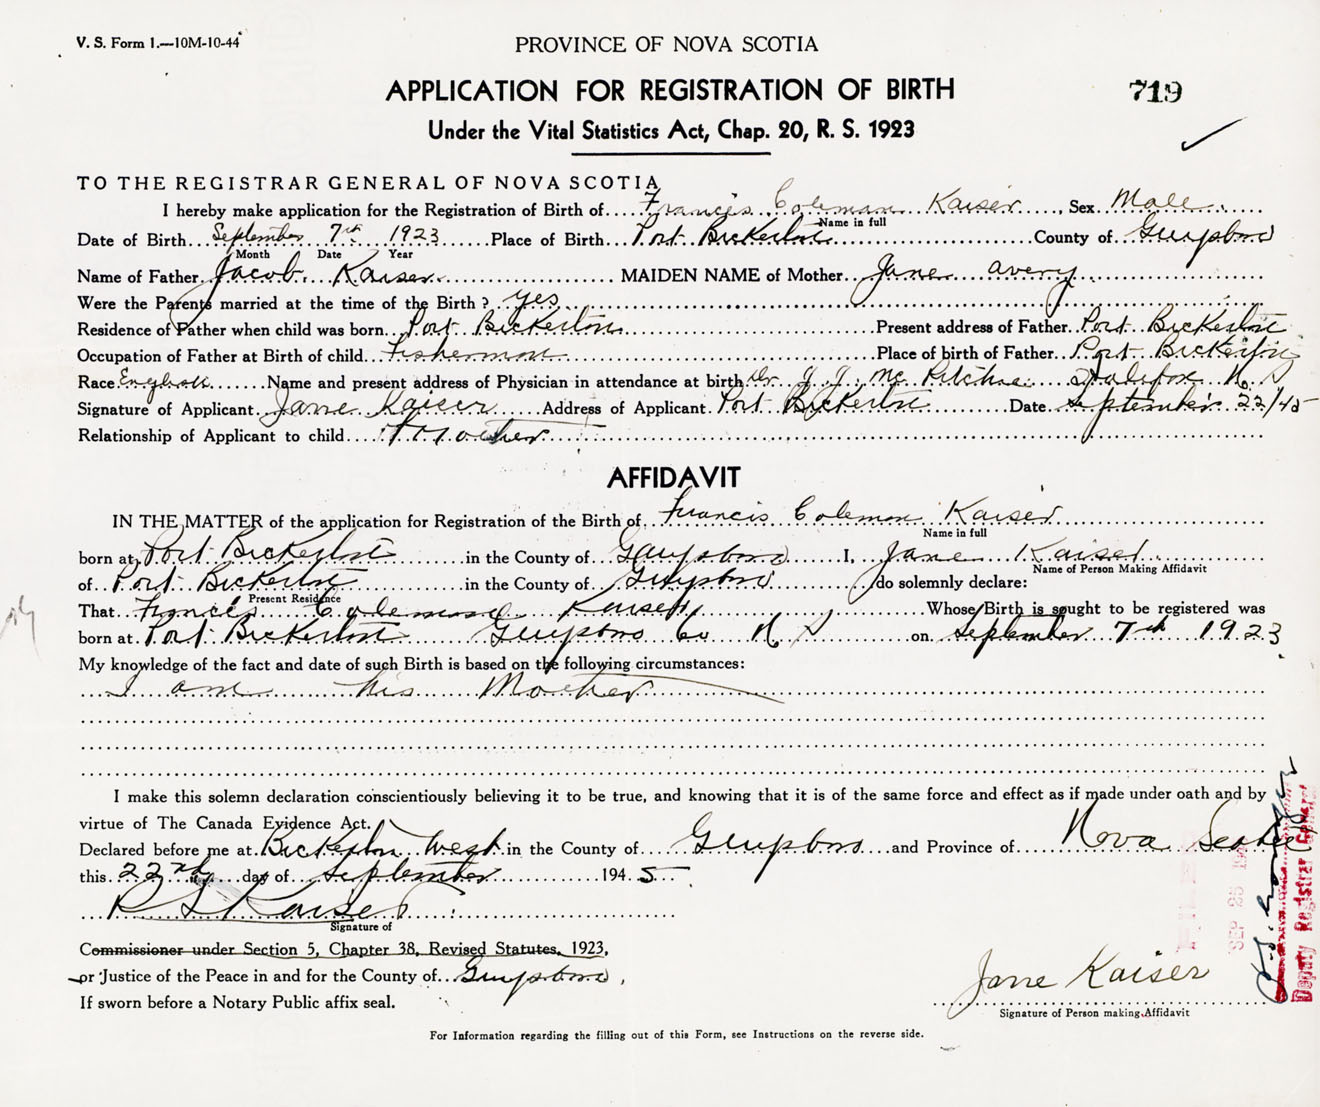 V. S. Form 1.—10M-10-44
PROVINCE OF NOVA SCOTIA
APPLICATION FOR REGISTRATION OF BIRTH
719
Under the Vital Statistics Act, Chap. 20, R. S. 1923
TO THE REGISTRAR GENERAL OF NOVA SCOTIA
I hereby make application for the Registration of Birth of Francis Coleman Kaiser, Sex Male
Name in full
Date of Birth September 7th 1923 Place of Birth Port Bickerton County of Guysboro
Month Date Year
Name of Father Jacob Kaiser MAIDEN NAME of Mother Jane avery
Were the Parents married at the time of the Birth? yes
Residence of Father when child was born Port Bickerton Present address of Father Port Bickerton
Occupation of Father at Birth of child Fisherman Place of birth of Father Port Bickerton
Race English Name and present address of Physician in attendance at birth Dr. J J Mc Ritchie Halifax N. S
Signature of Applicant Jane Kaiser Address of Applicant Port Bickerton Date September 22/45
Relationship of Applicant to child Mother
AFFIDAVIT
IN THE MATTER of the application for Registration of the Birth of Francis Coleman Kaiser
Name in full
born at Port Bickerton in the County of Guysboro I, Jane Kaiser
Name of Person Making Affidavit
of Port Bickerton in the County of Guysboro do solemnly declare:
Present Residence
That Francis Coleman Kaiser Whose Birth is sought to be registered was
born at Port Bickerton Guysboro Co N S on September 7th 1923
My knowledge of the fact and date of such Birth is based on the following circumstances:
I am his Mother
I make this solemn declaration conscientiously believing it to be true, and knowing that it is of the same force and effect as if made under oath and by
virtue of The Canada Evidence Act.
Declared before me at Bickerton West in the County of Guysboro and Province of Nova Scotia
this 22nd day of September 1945
R L Kaiser
Signature of
Commissioner under Section 5, Chapter 38, Revised Statutes, 1923,
or Justice of the Peace in and for the County of Guysboro,
If sworn before a Notary Public affix seal.
Jane Kaiser
Signature of Person making Affidavit
For Information regarding the filling out of this Form, see Instructions on the reverse side.
FILED
SEP 25
Deputy Registrar General